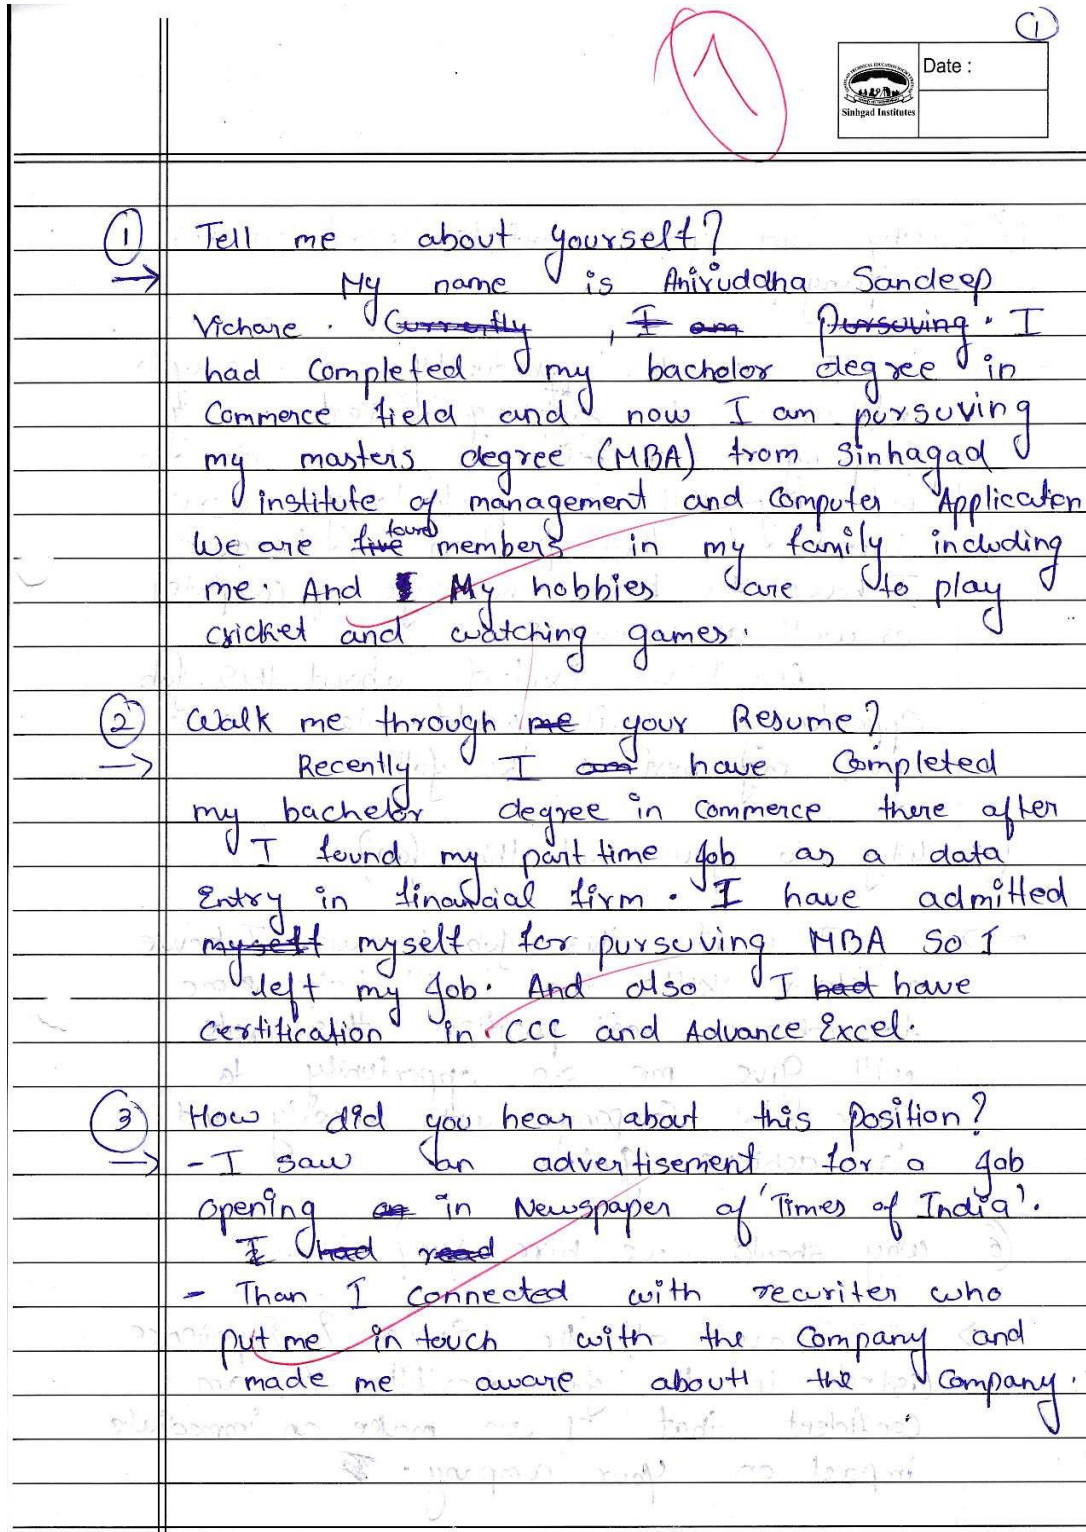 1
Date :
Sinhgad Institutes
1 Tell me about yourself?
→ My name is Aniruddha Sandeep
Vichare. Currently, I am Pursuving. I
had Completed my bachelor degree in
Commerce field and now I am pursuving
my masters degree (MBA) from Sinhagad
institute of management and Computer Application
We are five four members in my family including
me. And I My hobbies are to play
cricket and watching games.
2 Walk me through me your Resume?
→ Recently I am have Completed
my bachelor degree in Commerce there after
I found my part time Job as a data
Entry in financial firm. I have admitted
myself myself for pursuving MBA So I
left my Job. And also I had have
Certification in CCC and Advance Excel.
3 How did you hear about this Position?
→ - I saw an advertisement for a Job
opening in Newspaper of 'Times of India'.
I had read
- Than I connected with recuriter who
put me in touch with the Company and
made me aware about the Company.